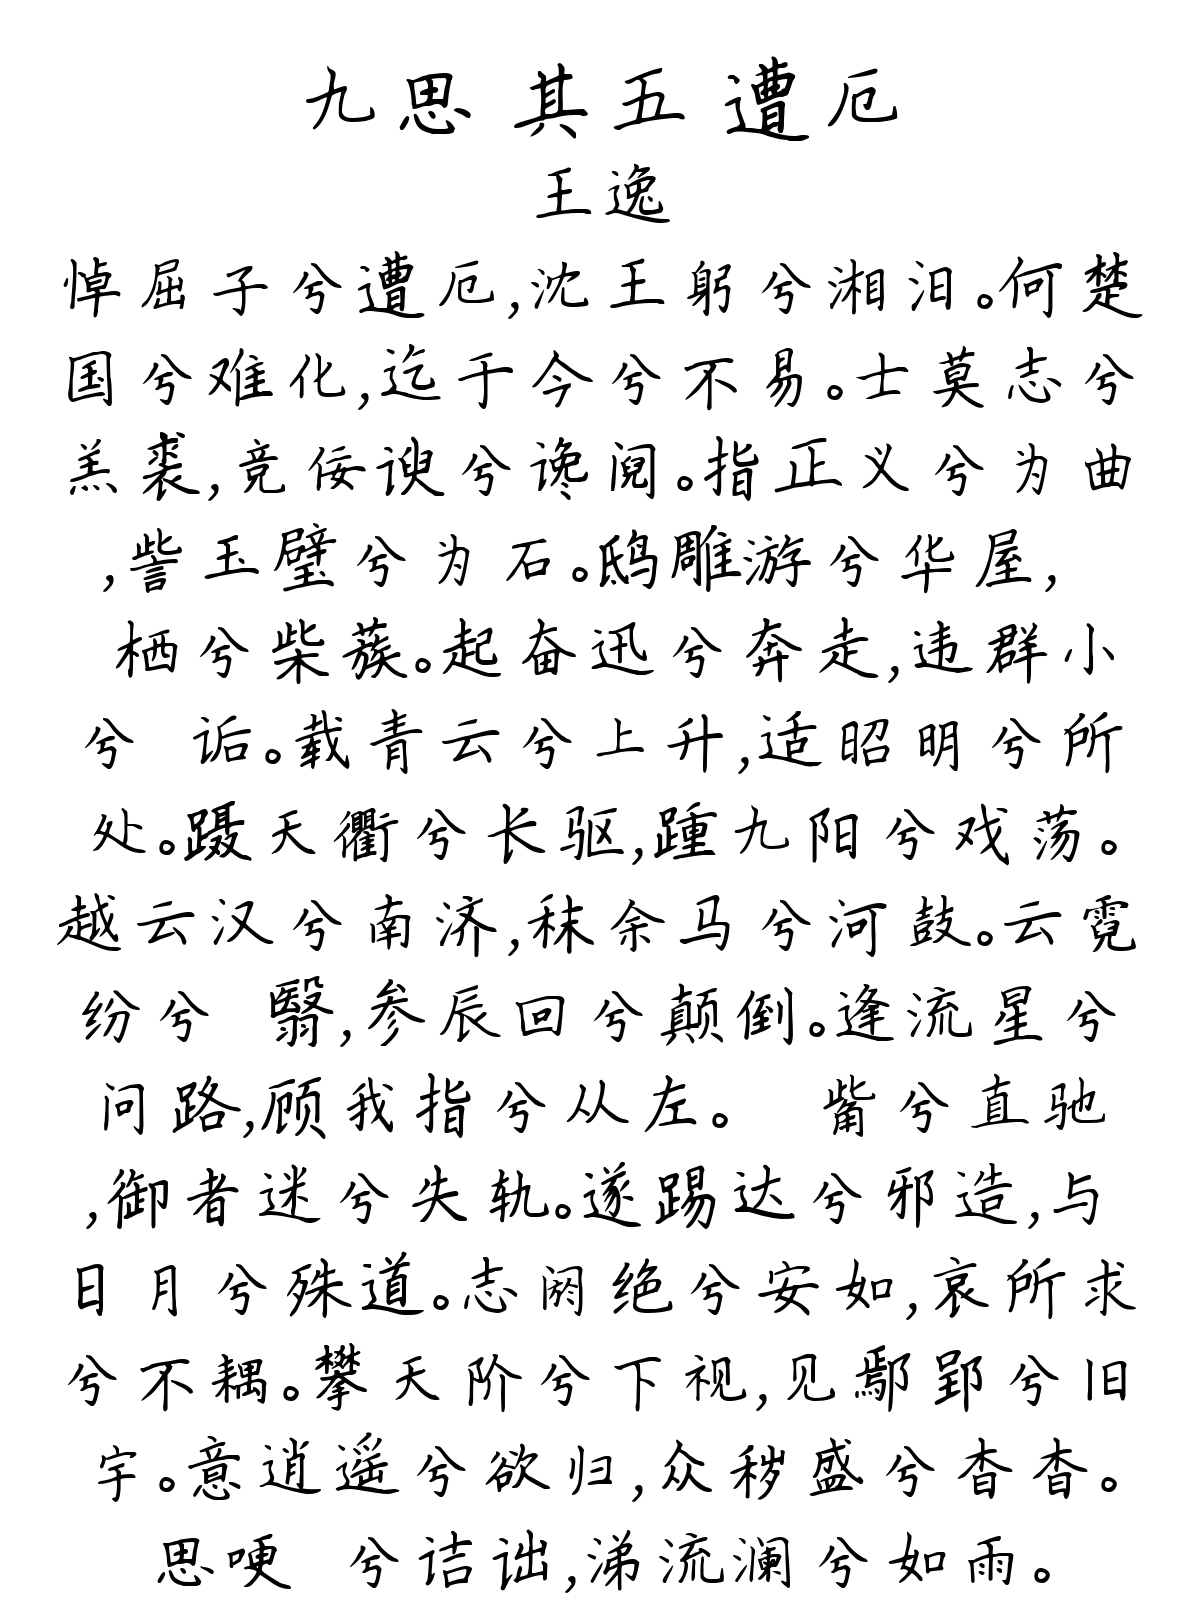 九思 其五 遭厄
王逸
悼屈子兮遭厄,沈王躬兮湘汨。何楚
国兮难化,迄于今兮不易。士莫志兮
羔裘,竞佞谀兮谗阋。指正义兮为曲
,訾玉璧兮为石。鸱雕游兮华屋,
栖兮柴蔟。起奋迅兮奔走,违群小
兮 诟。载青云兮上升,适昭明兮所
处。蹑天衢兮长驱,踵九阳兮戏荡。
越云汉兮南济,秣余马兮河鼓。云霓
纷兮 翳,参辰回兮颠倒。逢流星兮
问路,顾我指兮从左。 觜兮直驰
,御者迷兮失轨。遂踢达兮邪造,与
日月兮殊道。志阏绝兮安如,哀所求
兮不耦。攀天阶兮下视,见鄢郢兮旧
宇。意逍遥兮欲归,众秽盛兮杳杳。
思哽 兮诘诎,涕流澜兮如雨。